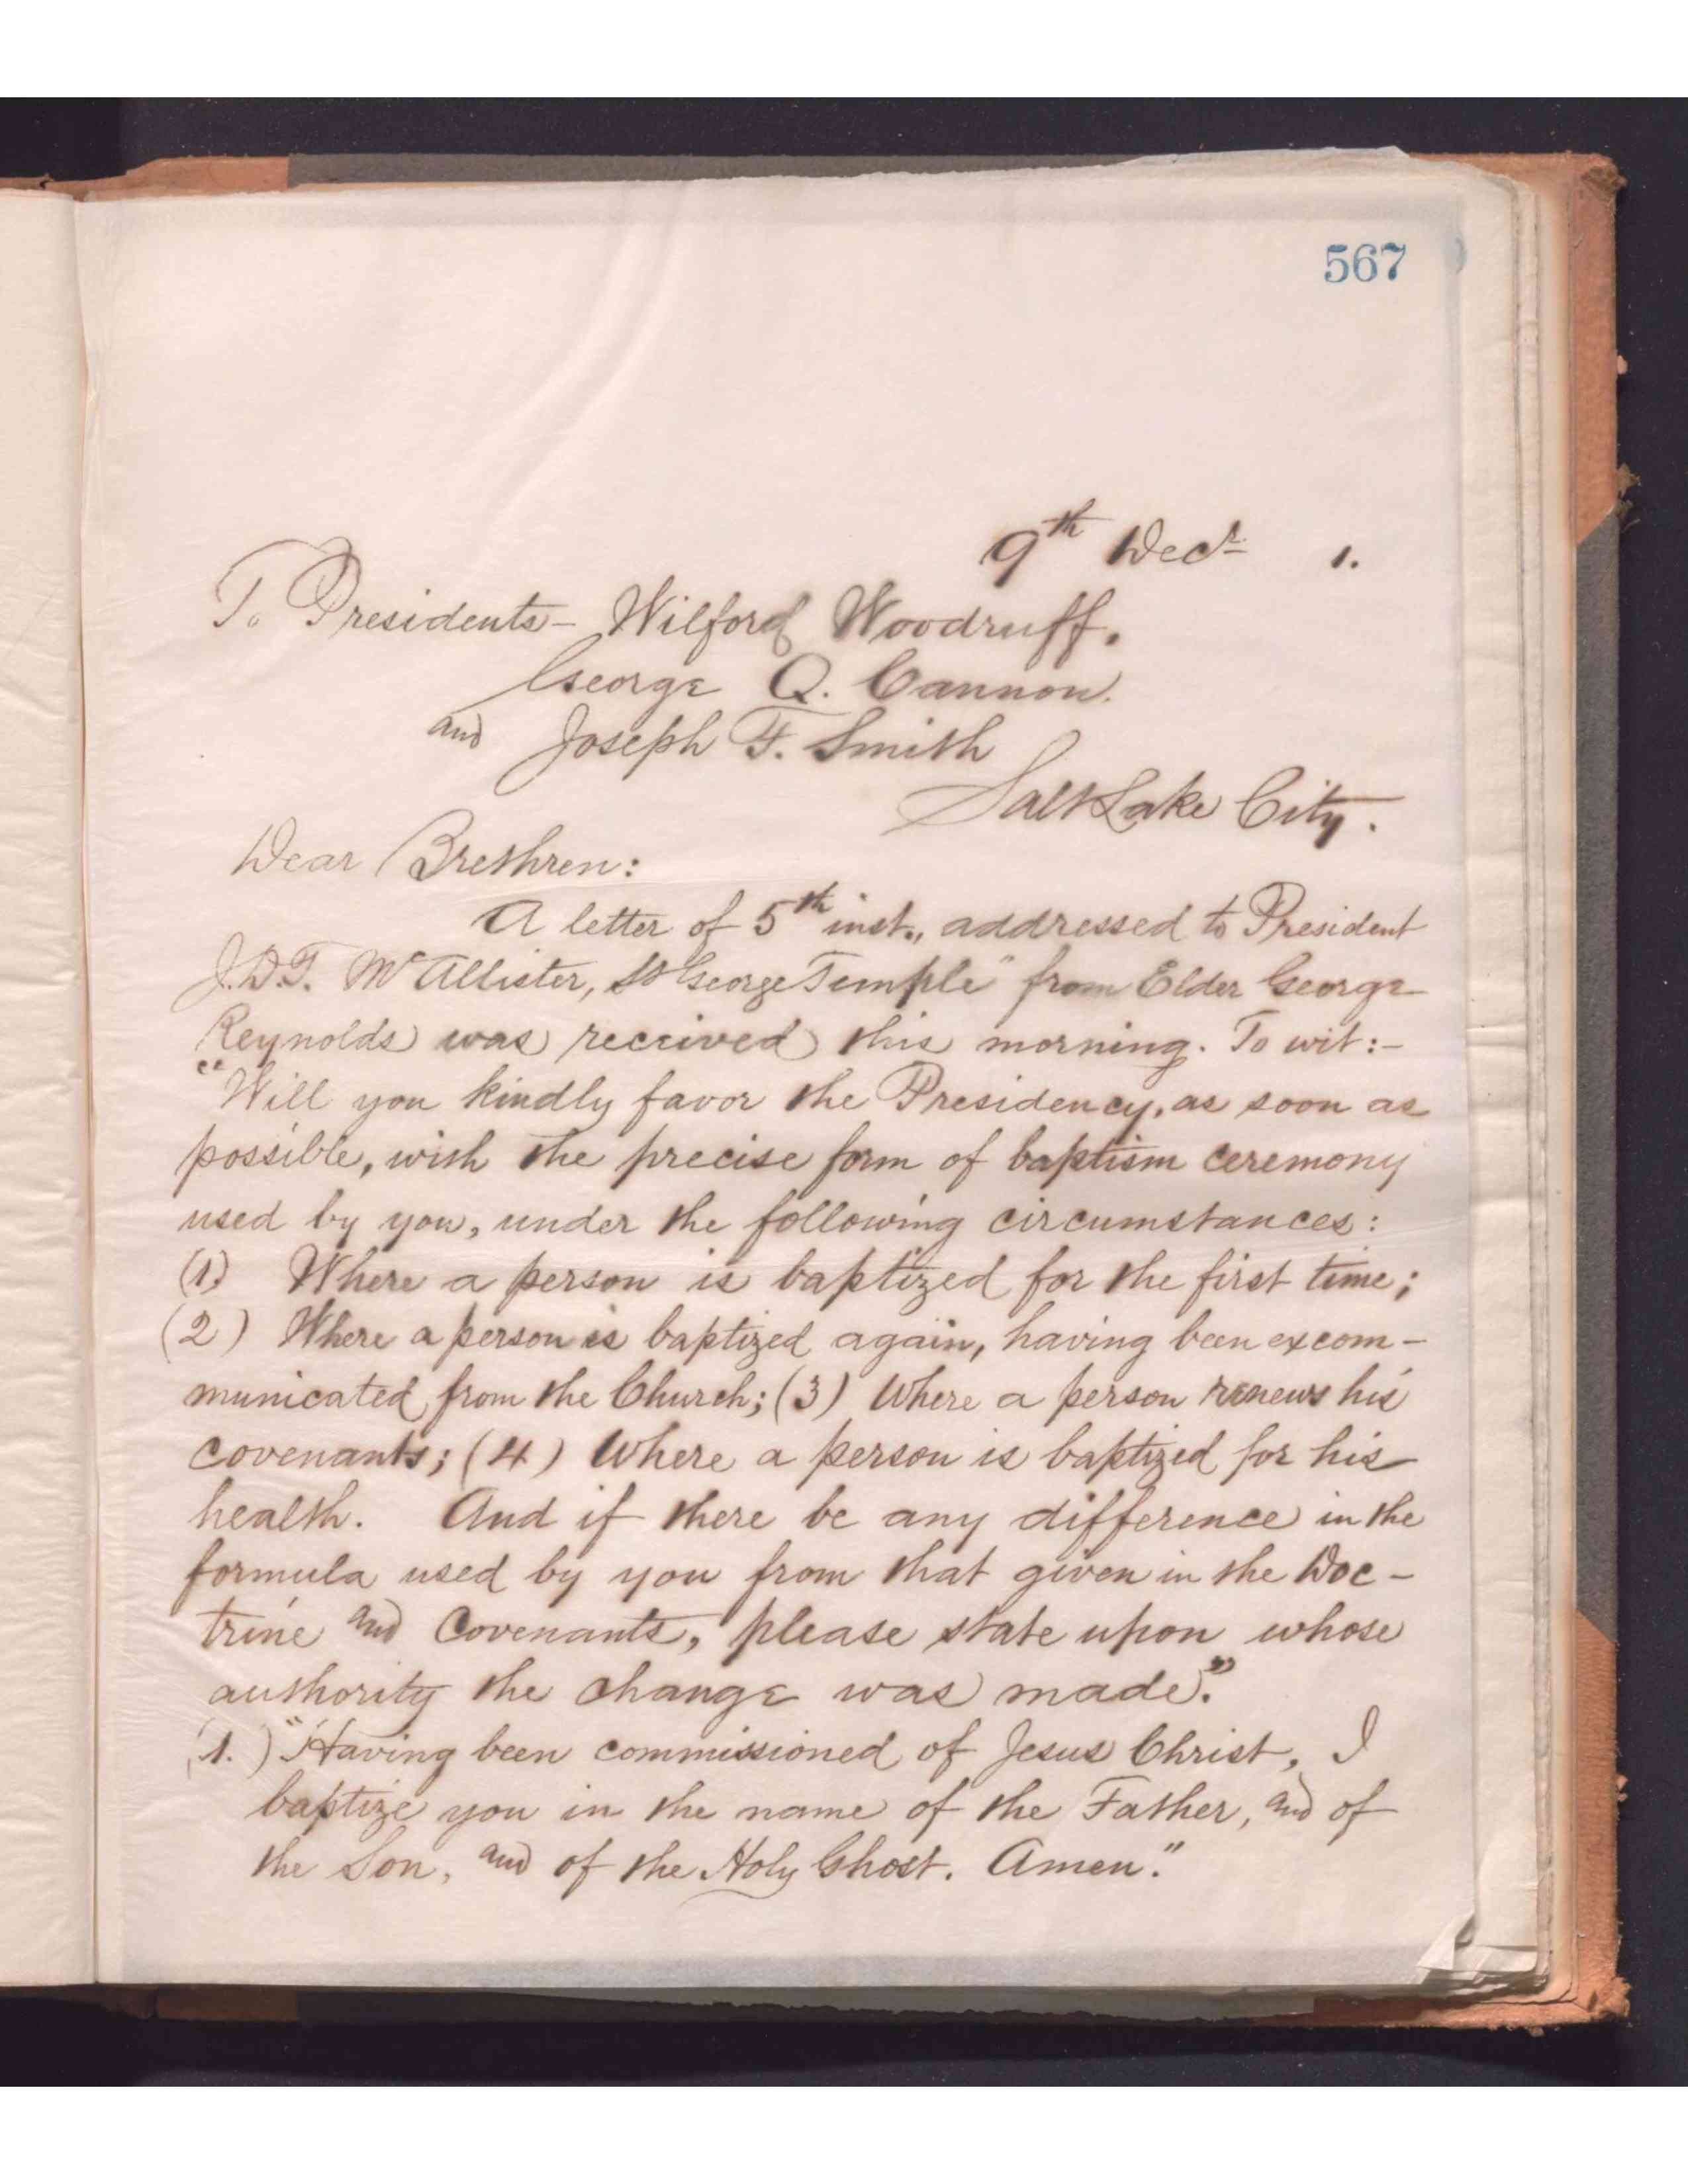 567
9th Decr 1.
To Presidents- Wilford Woodruff.
George Q. Cannon.
and Joseph F. Smith
Salt Lake City.
Dear Brethren:
A letter of 5th inst., addressed to President
J.D.T. McAllister, St George Temple" from Elder George
Reynolds was received this morning. To wit:-
"Will you kindly favor the Presidency, as soon as
possible, with the precise form of baptism ceremony
used by you, under the following circumstances:
(1) Where a person is baptized for the first time;
(2) Where a person is baptized again, having been excom-
municated from the Church; (3) Where a person renews his
covenants; (4) Where a person is baptized for his
health. And if there be any difference in the
formula used by you from that given in the Doc-
trine and Covenants, please state upon whose
authority the change was made."
(1.) "Having been commissioned of Jesus Christ, I
baptize you in the name of the Father, and of
the Son, and of the Holy Ghost. Amen."